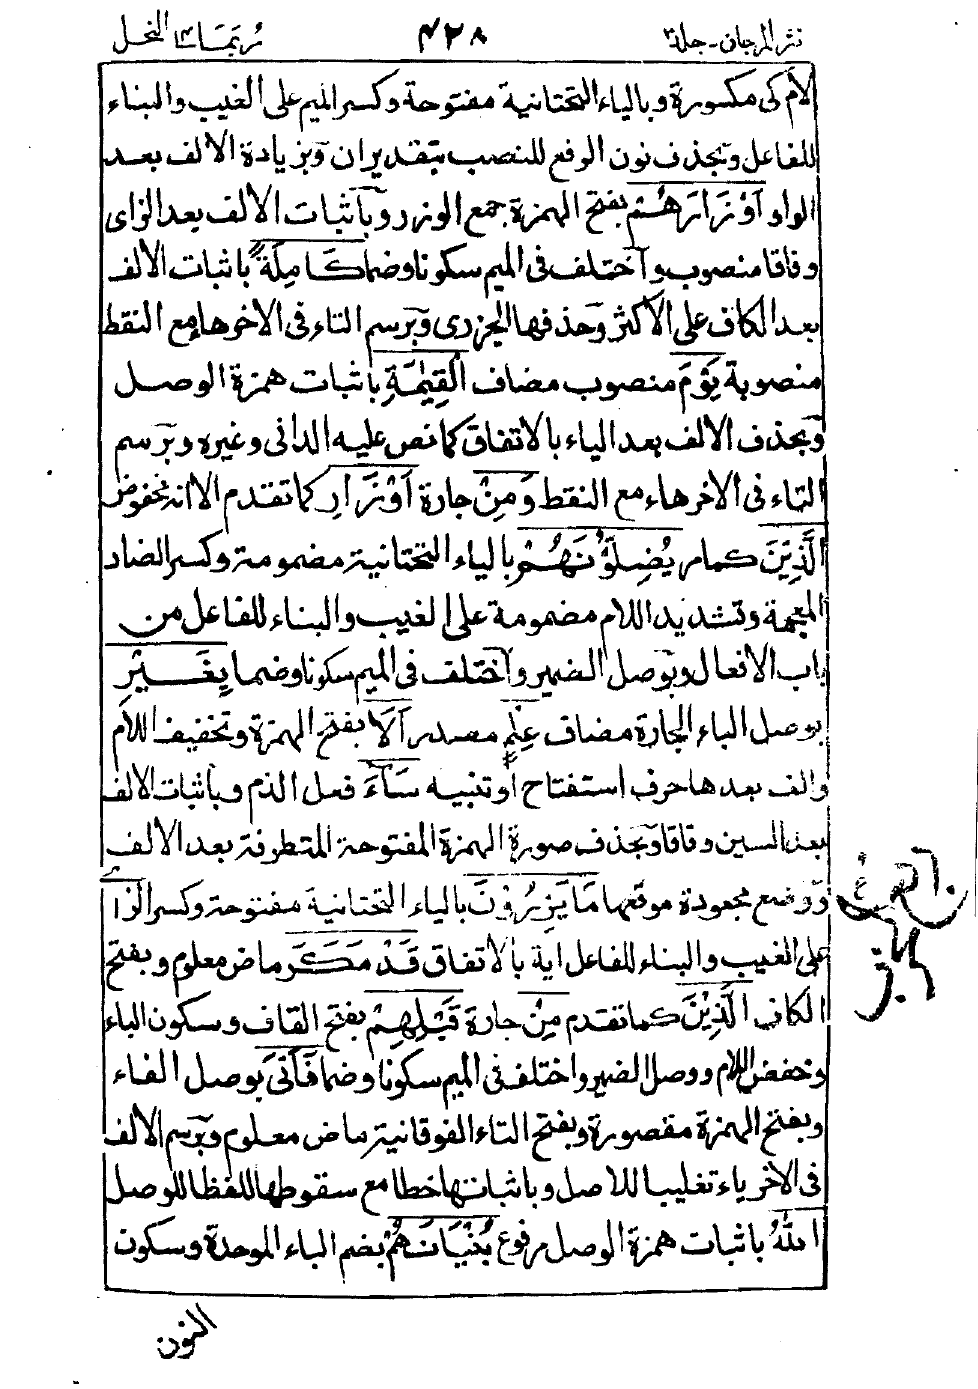 نثر المرجان - جلد ۳
۴۲۸
ربما ۱۴ النحل
لام كى مكسورة وبالياء التحتانية مفتوحة وكسر الميم على الغيب والبناء
للفاعل وبحذف نون الرفع للنصب بتقدير ان وبزيادة الالف بعد
الواو اَوْزَارَهُمْ بفتح الهمزة جمع الوزر وباثبات الالف بعد الزاى
وفاقا منصوب واختلف فى الميم سكونا وضما كَامِلَةً باثبات الالف
بعد الكاف على الاكثر وحذفها الجزرى وبرسم التاء فى الاخر هاء مع النقط
منصوبة يَوْمَ منصوب مضاف الْقِيٰمَةِ باثبات همزة الوصل
وبحذف الالف بعد الياء بالاتفاق كما نص عليه الدانى وغيره وبرسم
التاء فى الاخر هاء مع النقط وَمِنْ جارة اَوْزَارِ كما تقدم الا انه مخفوض
الَّذِيْنَ كما مر يُضِلُّوْنَهُمْ بالياء التحتانية مضمومة وكسر الضاد
المعجمة وتشديد اللام مضمومة على الغيب والبناء للفاعل من
باب الافعال وبوصل الضمير واختلف فى الميم سكونا وضما بِغَيْرِ
بوصل الباء الجارة مضاف عِلْمٍ مصدر اَلَا بفتح الهمزة وتخفيف اللام
والف بعدها حرف استفتاح او تنبيه سَآءَ فعل الذم وباثبات الالف
بعد السين وفاقا وبحذف صورة الهمزة المفتوحة المتطرفة بعد الالف
ووضع مجعودة موقعها مَا يَزِرُوْنَ بالياء التحتانية مفتوحة وكسر الزاء
على الغيب والبناء للفاعل اية بالاتفاق قَدْ مَكَرَ ماض معلوم وبفتح
الكاف الَّذِيْنَ كما تقدم مِنْ جارة قَبْلِهِمْ بفتح القاف وسكون الباء
وخفض اللام ووصل الضمير واختلف فى الميم سكونا وضما فَاَتَى بوصل الفاء
وبفتح الهمزة مقصورة وبفتح التاء الفوقانية ماض معلوم وبرسم الالف
فى الاخر ياء تغليبا للاصل وباثباتها خطا مع سقوطها لفظا للوصل
اللّٰهُ باثبات همزة الوصل مرفوع بُنْيَانَهُمْ بضم الباء الموحدة وسكون
النون